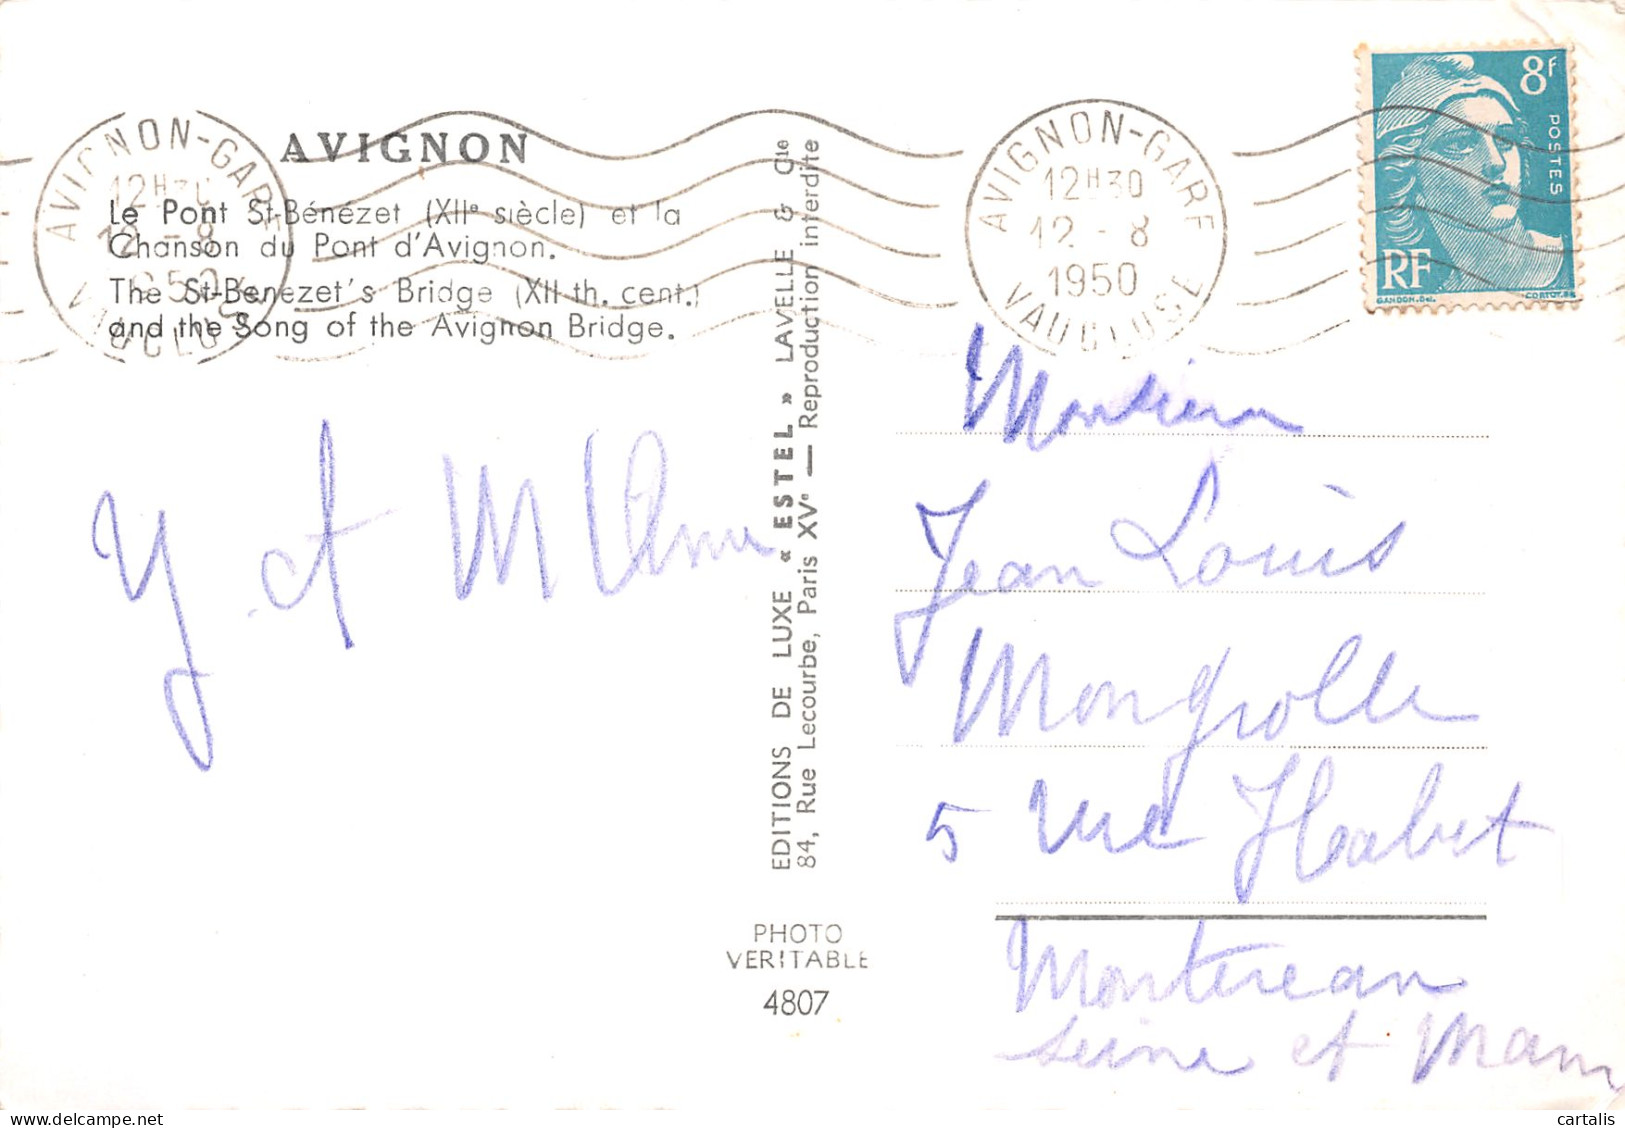 AVIGNON
Le Pont St-Bénézet (XIIᵉ siècle) et la
Chanson du Pont d'Avignon.
The St-Benezet's Bridge (XII th. cent.)
and the Song of the Avignon Bridge.
AVIGNON-GARE
12H30
12 -8
1950
VAUCLUSE
AVIGNON-GARE
12H30
12 -8
1950
VAUCLUSE
8f
POSTES
RF
GANDON.Del.
CORTOT.SC
EDITIONS DE LUXE « ESTEL » LAVELLE & Cie
84, Rue Lecourbe, Paris XVᵉ — Reproduction interdite
Y et M
PHOTO
VERITABLE
4807
Monsieur
Jean Louis
Mongrolle
5 rue Habert
Montereau
Seine et Marn
cartalis